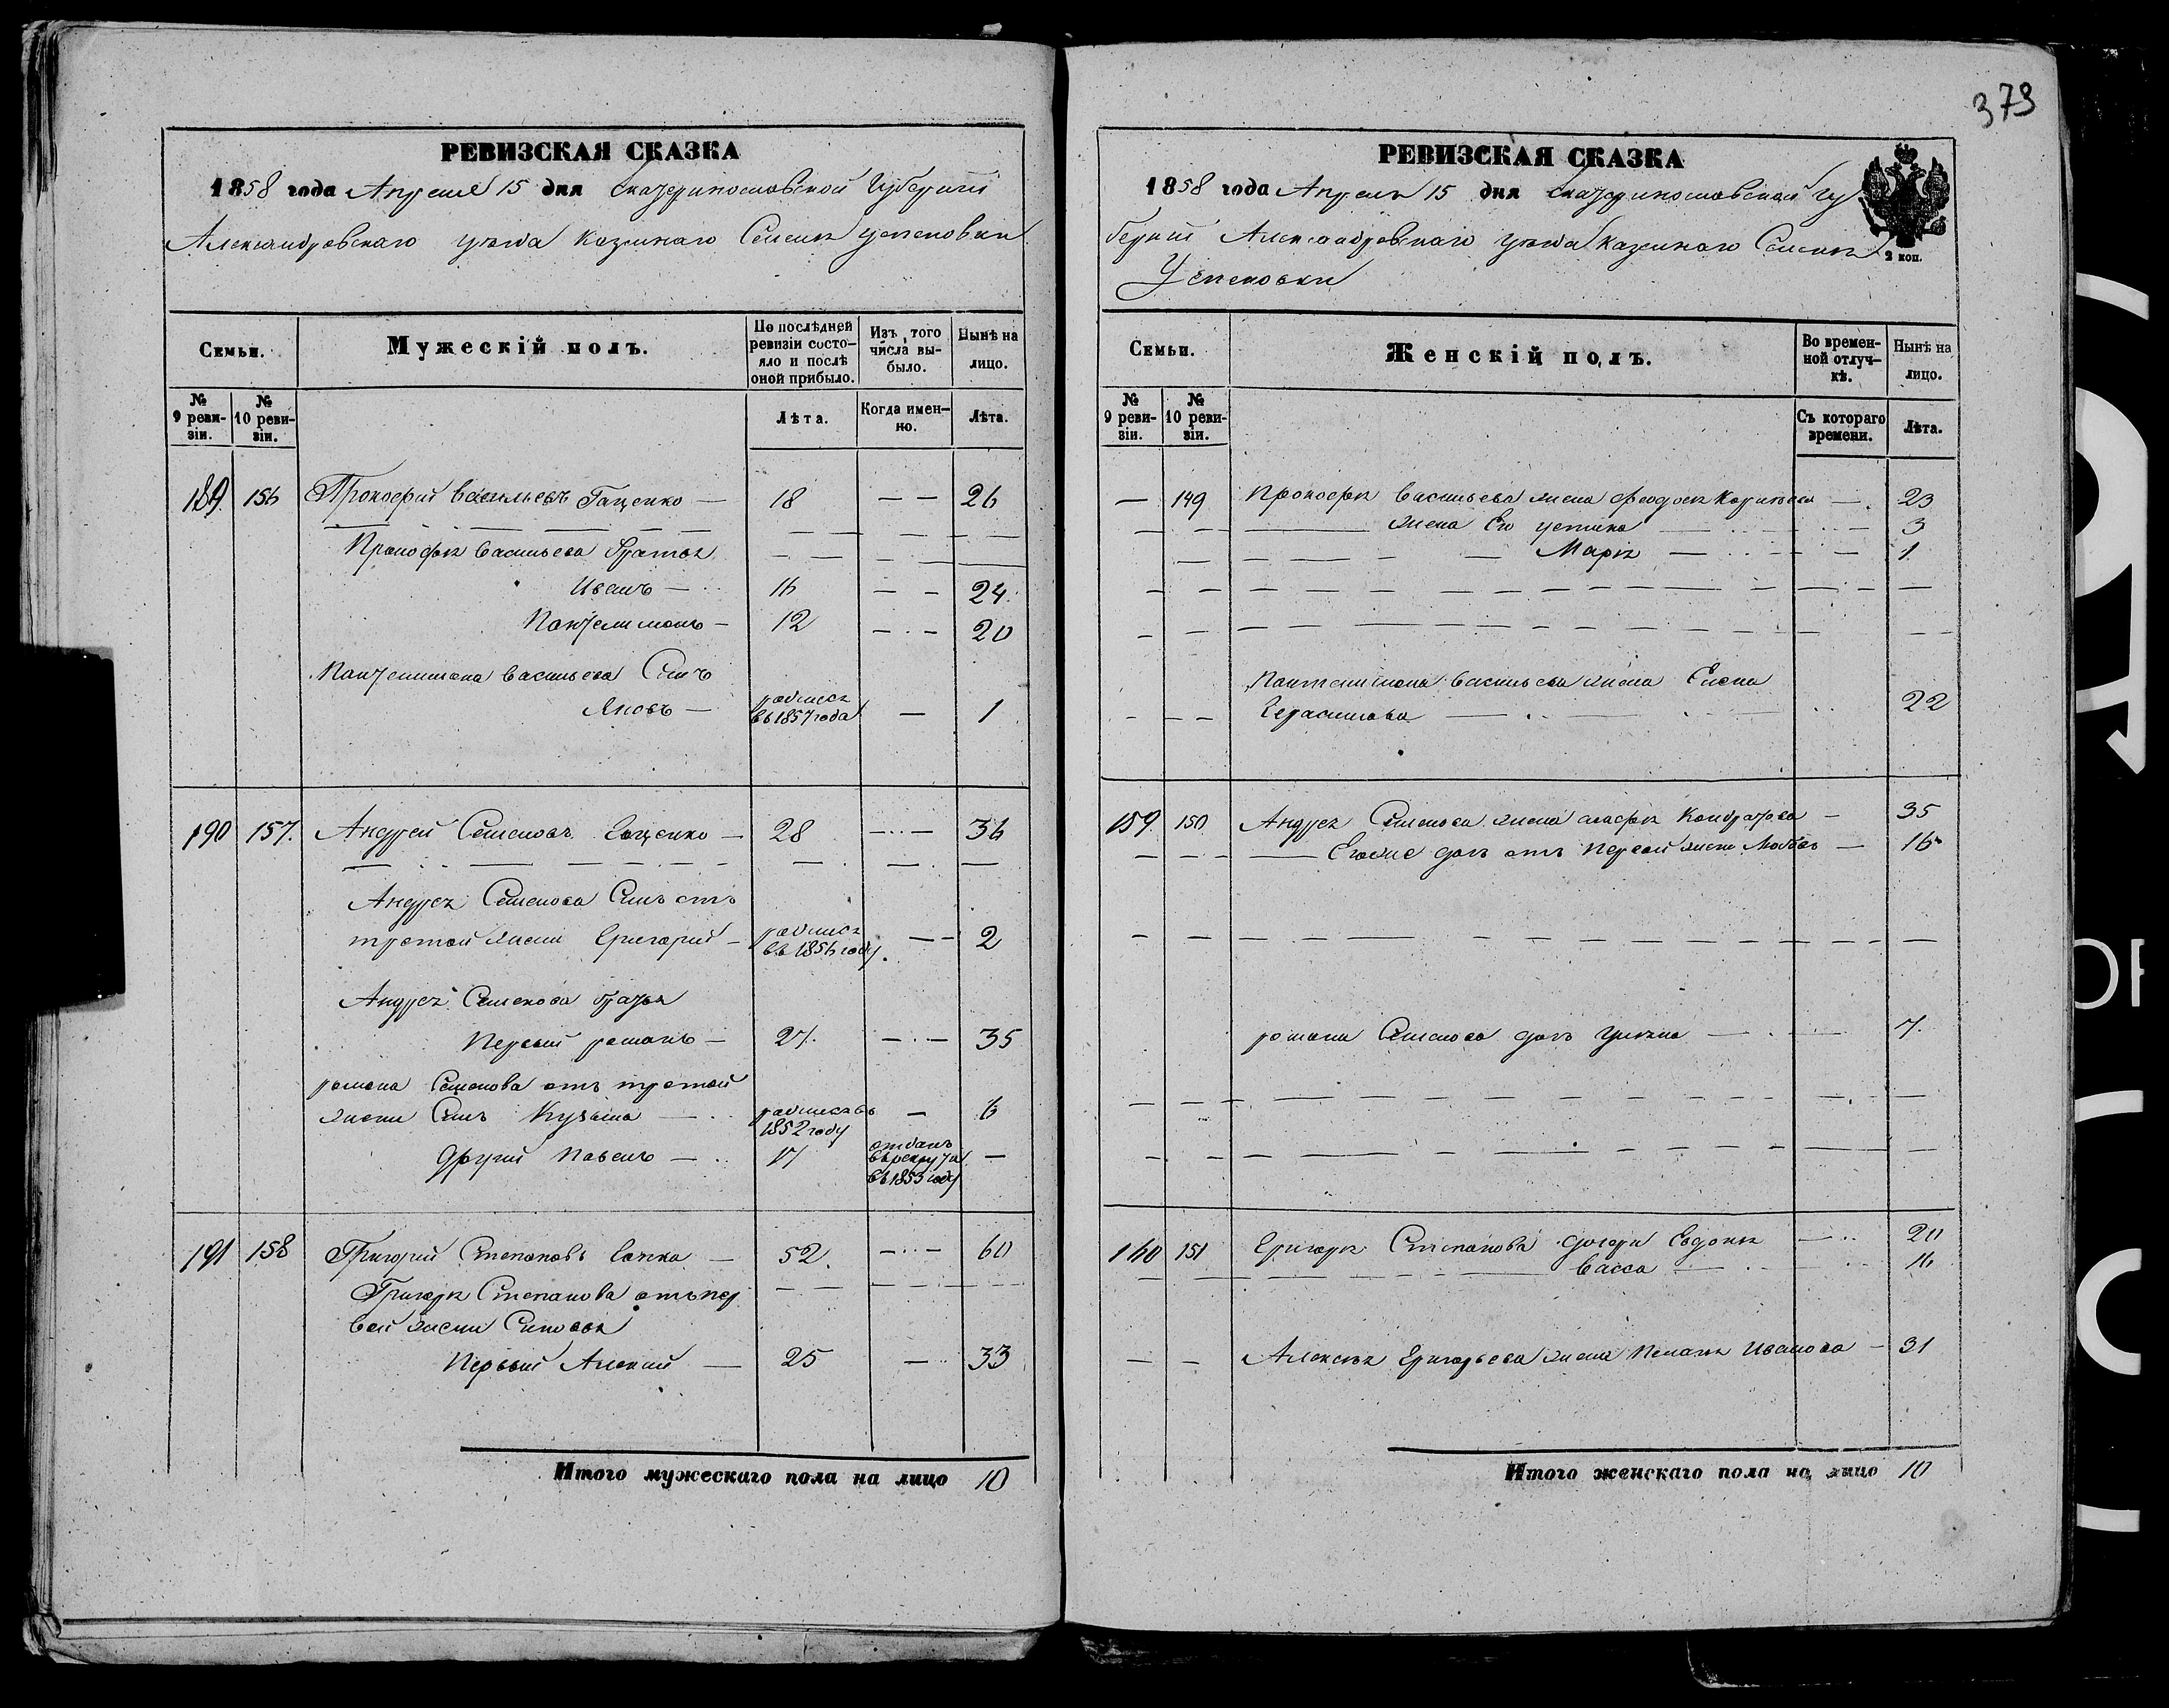 379
РЕВИЗСКАЯ СКАЗКА
1858 года Апреля 15 дня Екатеринославской Губернии
Александровскаго уезда Казеннаго Селения Успеновки
Семьи.
Мужескій полъ.
По послѣдней ревизіи состояло и послѣ оной прибыло.
Изъ того числа выбыло.
Нынѣ на лицо.
№ 9 ревизіи.
№ 10 ревизіи.
Лѣта.
Когда именно.
Лѣта.
189. 156 Прокофий Васильевъ Гаценко — 18 — — 26
Прокофия Васильева братья
Иванъ — 16 — — 24
Пантелимонъ — 12 — — 20
Пантелимона Васильева Сынъ
Яковъ — родился въ 1857 года — 1
190 157. Андрей Семеновъ Гоценко — 28 — — 36
Андрея Семенова Сынъ отъ
третой жены Григорий — родился въ 1856 году. — — 2
Андрея Семенова братья
Первый романъ — 27. — — 35
романа Семенова отъ третой
жены Сынъ Кузьма — родился въ 1852 году — 6
Другий Павелъ — 17 отданъ въ рекруты въ 1853 году —
191 158 Григорий Степановъ — 52. — — 60
Григория Степанова отъ пер
вой жены Сыновья
Первый Алексий — 25 — 33
Итого мужескаго пола на лицо 10
РЕВИЗСКАЯ СКАЗКА
1858 года Апреля 15 дня Екатеринославской Гу
бернии Александровскаго уезда Казеннаго Селения
Успеновки
2 коп.
Семьи.
Женскій полъ.
Во временной отлучкѣ.
Нынѣ на лицо.
№ 9 ревизіи.
№ 10 ревизіи.
Съ котораго времени.
Лѣта.
— 149 Прокофия Васильева жена Феодосия — 23
Его Устина — 3
Мария — 1
Пантелимона Васильева жена Елена
Герасимова — 22
159. 150. Андрея Семенова жена Кондратова — 35
Егоже дочь отъ первой жены Любовь — 16
романа Семенова дочь — 7.
160 151 Григория Степанова дочери Евдокия — 20
Васса — 16
Алексия Григорьева жена Пелагия Иванова — 31
Итого женскаго пола на лицо 10